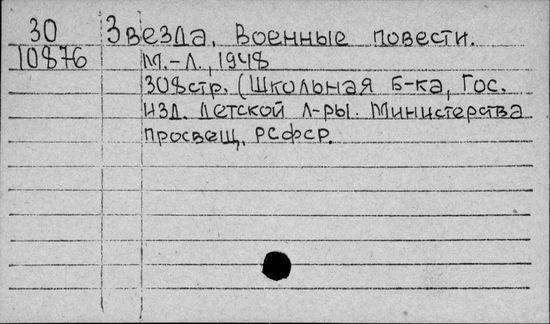 30 Звезда, Военные повести.
10876 М.-Л., 1948
308стр. (Школьная Б-ка, Гос.
изд. Детской л-ры. Министерства
просвещ, РСФСР.